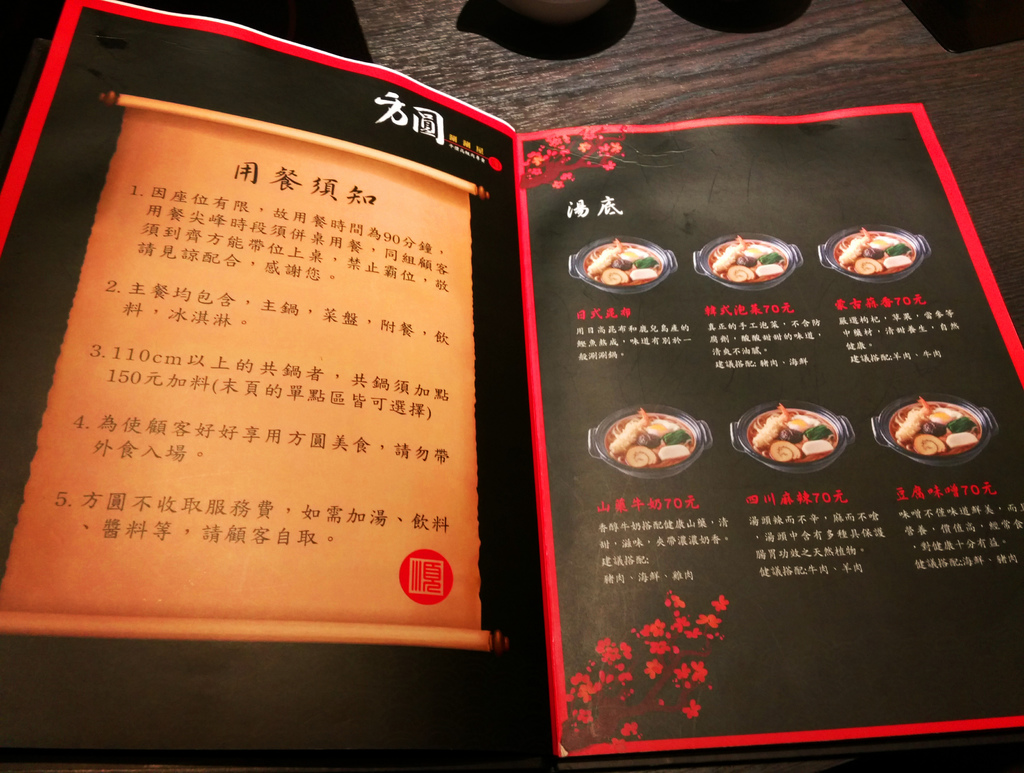 方圓
涮涮屋
用餐須知
1. 因座位有限，故用餐時間為90分鐘，
用餐尖峰時段須併桌用餐，同組顧客
須到齊方能帶位上桌，禁止霸位，敬
請見諒配合，感謝您。
2. 主餐均包含，主鍋，菜盤，附餐，飲
料，冰淇淋。
3. 110cm以上的共鍋者，共鍋須加點
150元加料(末頁的單點區皆可選擇)
4. 為使顧客好好享用方圓美食，請勿帶
外食入場。
5. 方圓不收取服務費，如需加湯、飲料
、醬料等，請顧客自取。
湯底
日式昆布
用日高昆布和鹿兒島產的
鰹魚熬成，味道有別於一
般涮涮鍋。
韓式泡菜70元
真正的手工泡菜，不含防
腐劑，酸酸甜甜的味道，
清爽不油膩。
建議搭配:豬肉、海鮮
蒙古蒜香70元
嚴選枸杞，草果，當蔘等
中藥材，清甜養生，自然
健康。
建議搭配:羊肉、牛肉
山藥牛奶70元
香醇牛奶搭配健康山藥，清
甜，滋味，夾帶濃濃奶香。
建議搭配:
豬肉、海鮮、雞肉
四川麻辣70元
湯頭辣而不辛，麻而不嗆
，湯頭中含有多種具保護
腸胃功效之天然植物。
健議搭配:牛肉、羊肉
豆腐味噌70元
味噌不僅味道鮮美，而且
營養，價值高，經常食
，對健康十分有益。
健議搭配:海鮮、豬肉